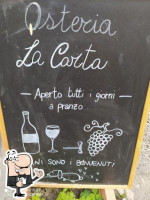 Osteria
La Corta
Aperto tutti i giorni
a pranzo
NI SONO I BENVENUTI